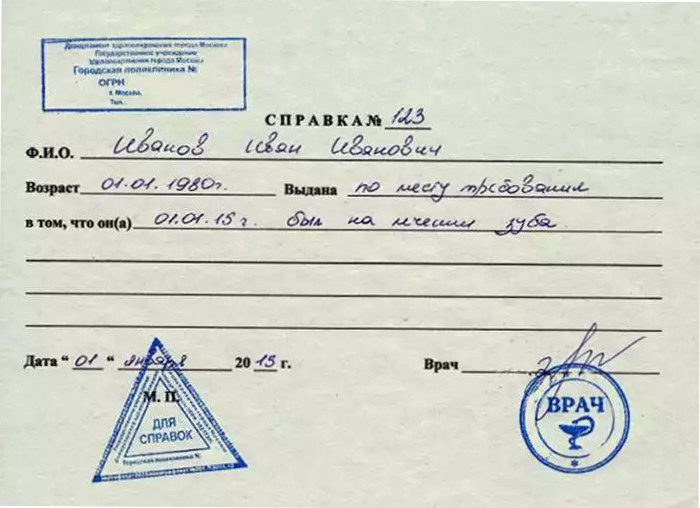 Департамент здравоохранения города Москвы
Государственное учреждение
здравоохранения города Москвы
Городская поликлиника №
ОГРН
г. Москва,
Тел.
СПРАВКА № 123
Ф.И.О. Иванов Иван Иванович
Возраст 01.01.1980г. Выдана по месту требования
в том, что он(а) 01.01.15 г. был на лечении зуба
Дата “ 01 “ января 2015 г. Врач
М. П.
ДЛЯ
СПРАВОК
Городская поликлиника №
ВРАЧ